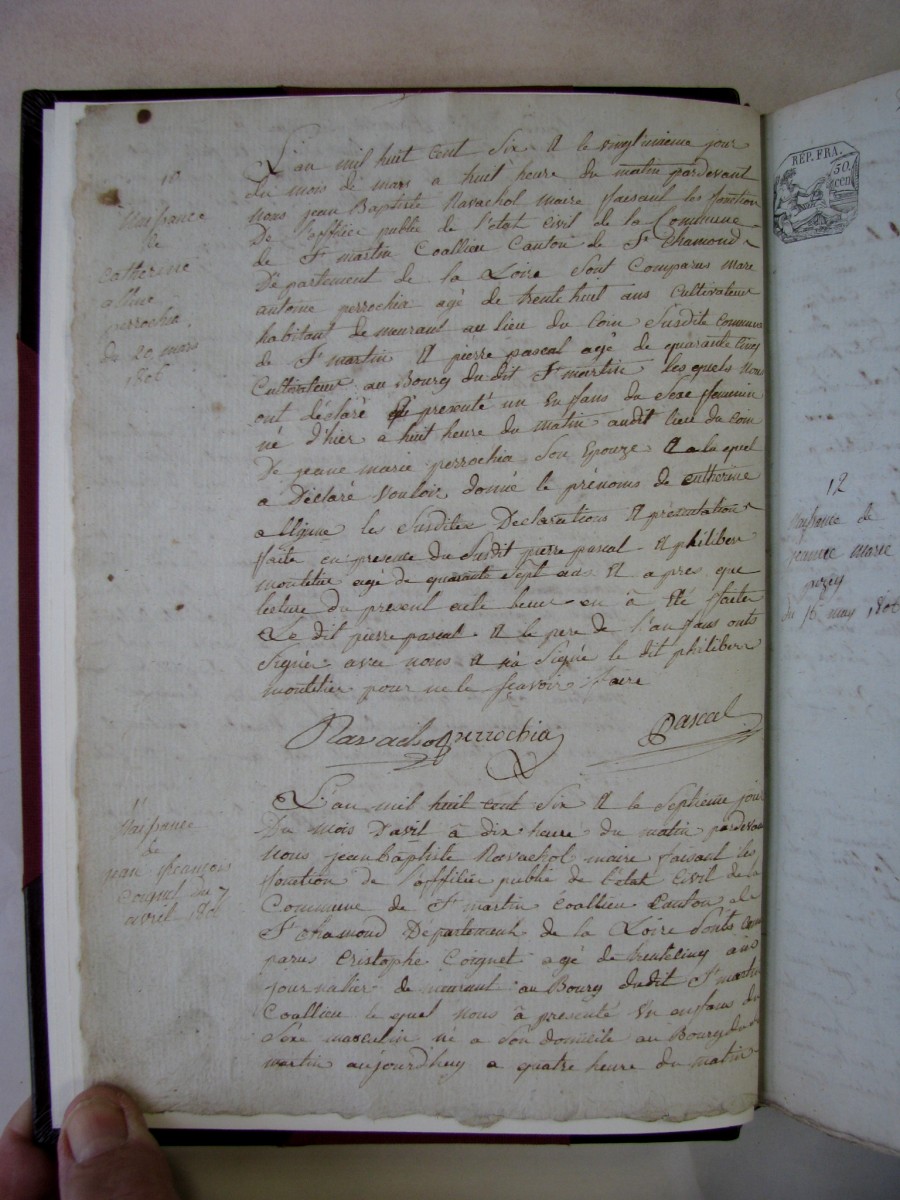 10
Naissance
de
Catherine
alline
perrochia
du 20 mars
1806
L'an mil huit cent six & le vingtnieme jour
du mois de mars a huit heure du matin pardevant
nous jean Baptiste Ravachol maire faisant les fonction
De l'officié public de l'etat civil de la Commune
de St martin Coallieu Canton de St Chamond
Département de la Loire Sont Comparus marc
antoine perrochia agé de trente huit ans Cultivateur
habitant demeurant au lieu du Coin Susdite commune
de St martin & pierre pascal age de quarante cinq
Cultivateur au Bourg du dit St martin les quels nous
ont déclaré & presenté un Enfans du Sexe feminin
né d'hier a huit heure du matin audit lieu du Coin
De jeane marie perrochia Son Epouze & a la quel
a Déclaré vouloir donné le prénoms de Catherine
les Susdites Déclarations & presentation
faite en presence du Susdit pierre pascal & philiber
montelier agé de quarante Sept ans & apres que
lecture du present acte leur en à été faite
Le dit pierre pascal & le pere de l'anfans onts
Signés avec nous & na Signé le dit philiber
montelier pour ne le sçavoir faire
Ravachol perrochia Pascal
11
Naissance
de
jean françois
Coignet du 7
avril 1806
L'an mil huit cent Six & le Septieme jour
Du mois D'avril à dix heure du matin pardevan
Nous jean Baptiste Ravachol maire faisant les
fonction de l'officié public de l'etat Civil de la
Commune de St martin Coallieu Canton de
St Chamond Département de la Loire Sonts com
parus Cristophe Coignet agé de trentecinq ans
journalier demeurant au Bourg dudit St martin
Coallieu le quel nous à presenté un enfans du
Séxe masculin né a Son domicile au Bourg du
martin aujourdhuy a quatre heure du matin
REP. FRA.
50
CEN
12
Naissance de
jeanne marie
du 15 may 1806